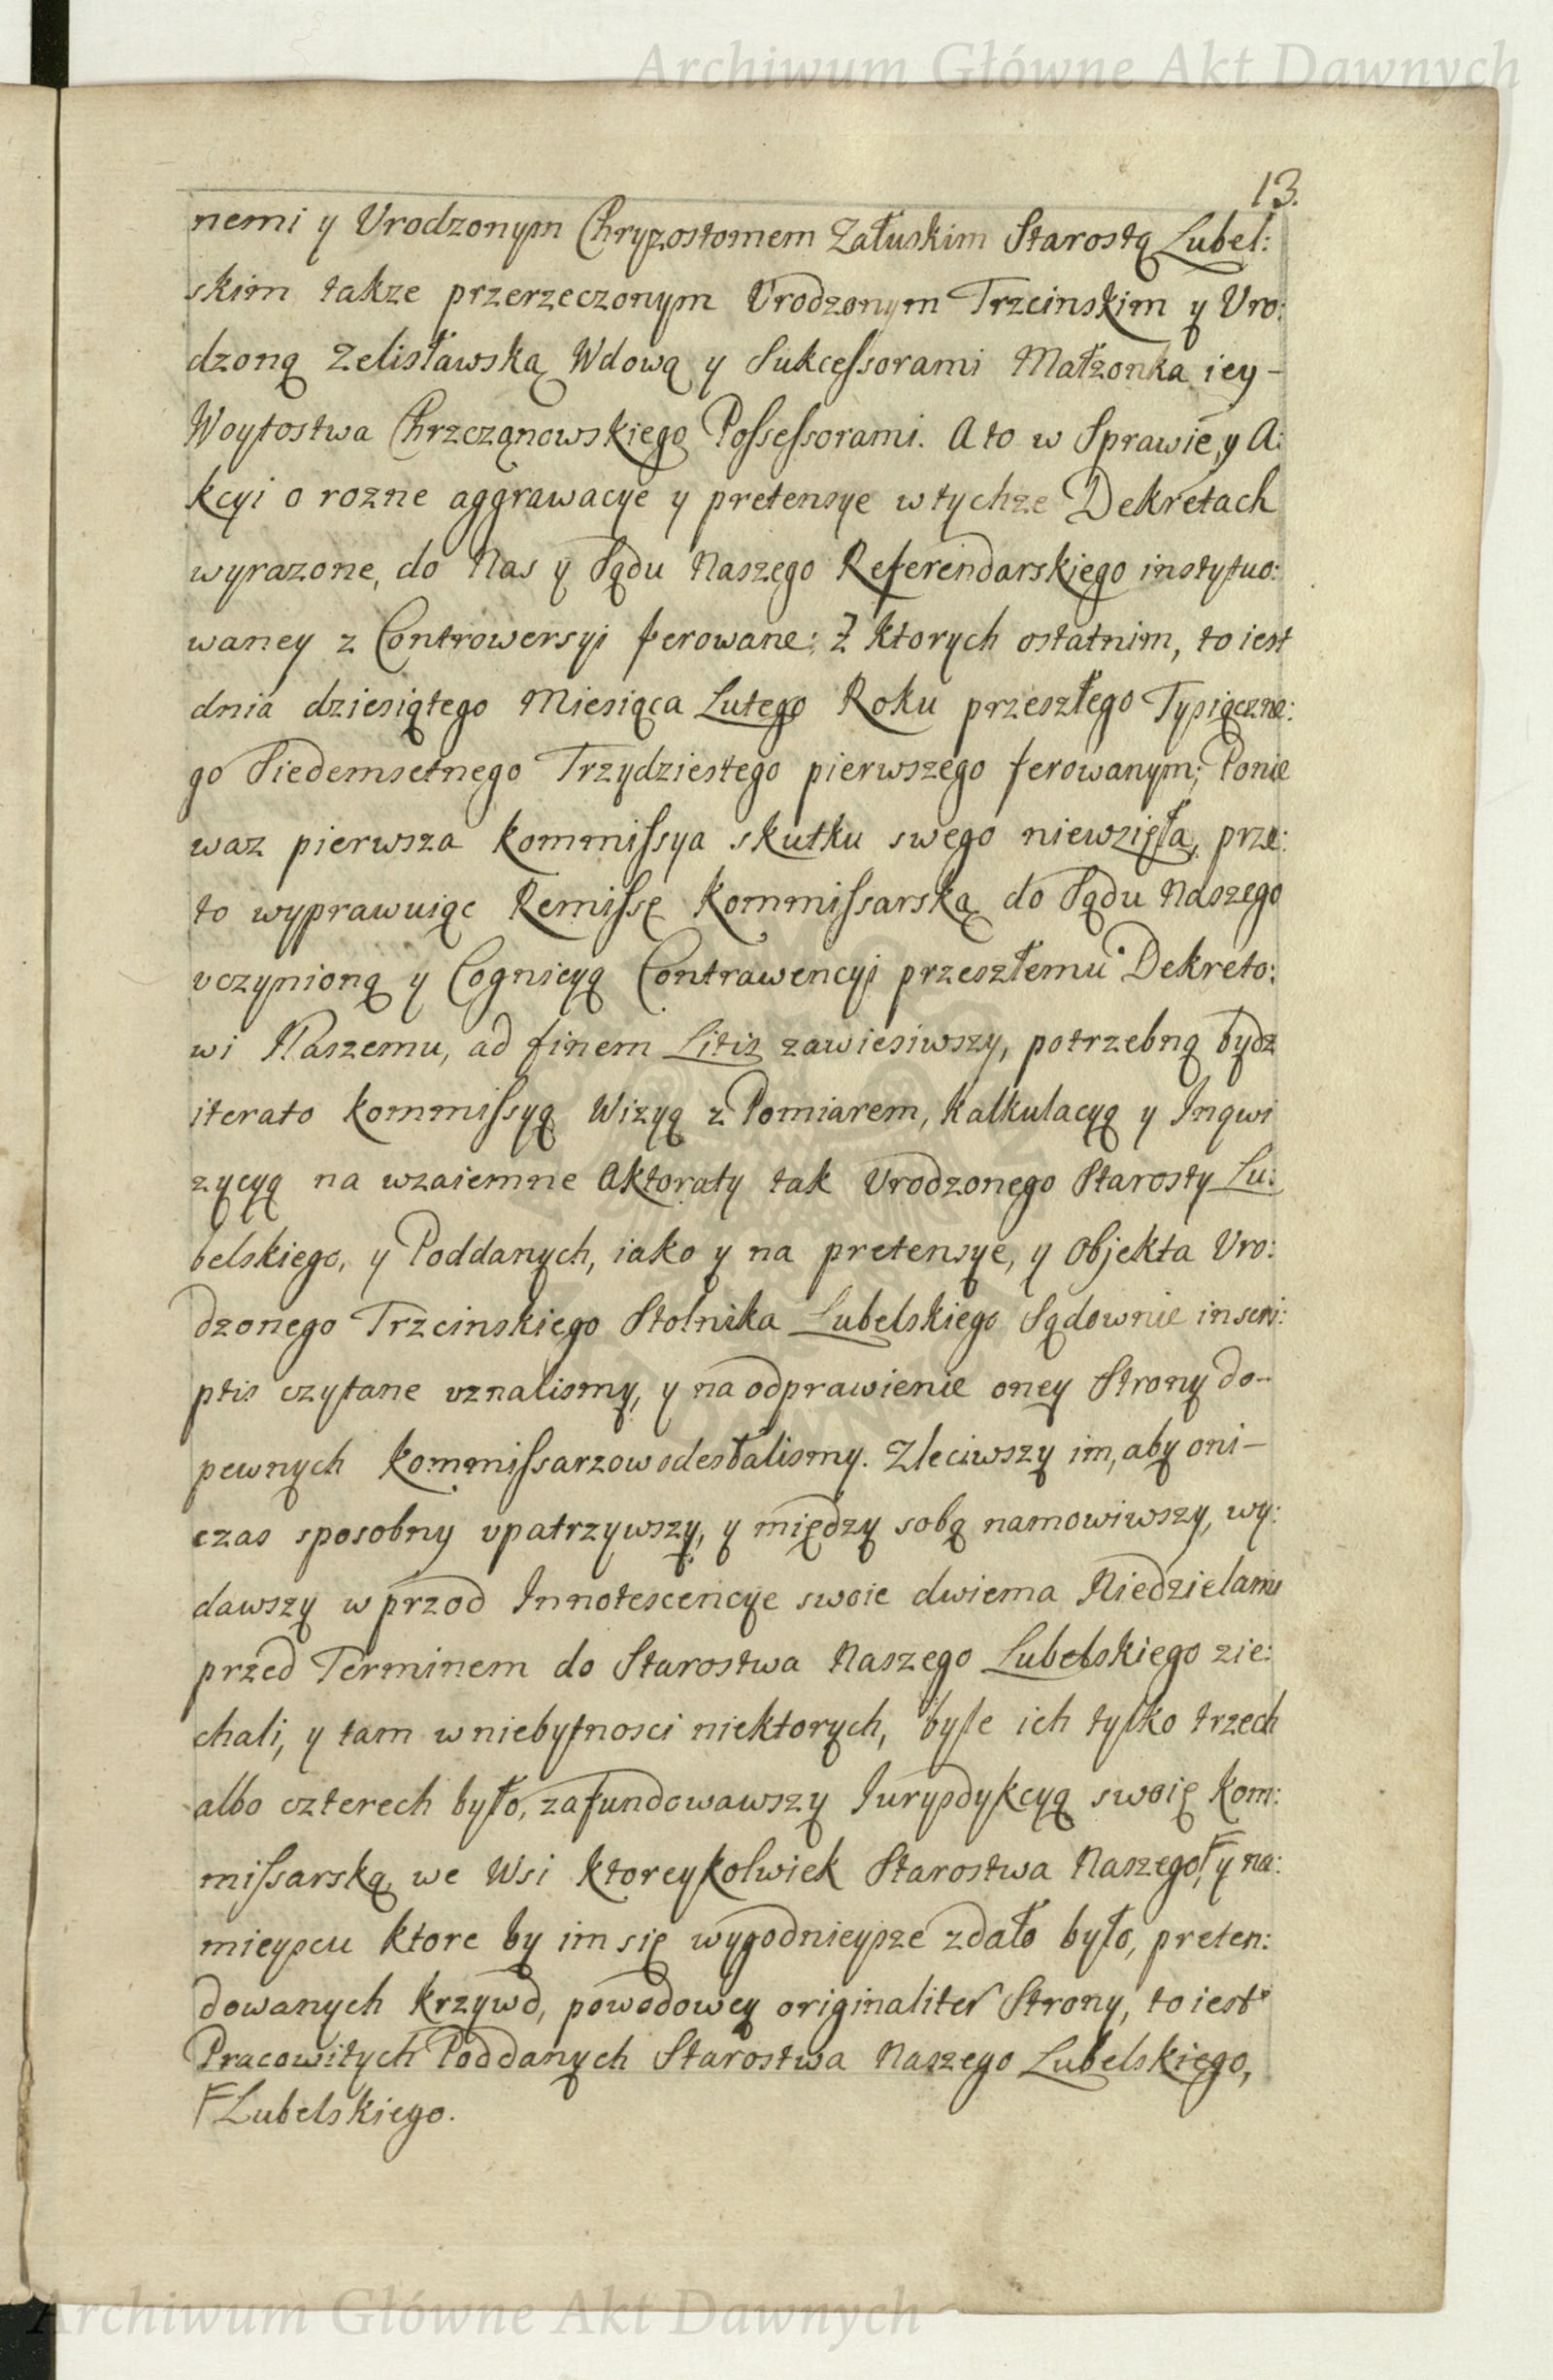 Archiwum Główne Akt Dawnych
13.
nemi y Vrodzonym Chryzostomem Załuskim Starostą Lubel:
skim takze przerzeczonym Vrodzonym Trzcinskim y Vro:
dzoną Zelisławską Wdową y Sukceſsorami Małzonka iey –
Woytostwa Chrzcząnowskiego Poſseſsorami. A to w Sprawie, y A:
kcyi o rozne aggrawacye y pretensye w tychze Dekretach
wyrazone, do Nas y Sądu Naszego Referendarskiego instytuo:
waney z Controwersyi ferowane: Z ktorych ostatnim, to iest
dnia dziesiątego Miesiąca Lutego Roku przeszłego Tysiączne:
go Siedemsetnego Trzydziestego pierwszego ferowanym; Ponie
waz pierwsza kommiſsya skutku swego niewzięła, prze:
to wyprawuiąc Remiſsę Kommiſsarską do Sądu Naszego
vczynioną y Cognicyą Contrawencyi przeszłemu Dekreto:
wi Naszemu, ad finem Litis zawiesiwszy, potrzebną bydz
iterato kommiſsyą Wizyą z Pomiarem, kalkulacyą y Inqwi
zycyą na wzaiemne Aktoraty tak Vrodzonego Starosty Lu:
belskiego, y Poddanych, iako y na pretensye, y Objekta Vro:
dzonego Trzcinskiego Stolnika Lubelskiego Sądownie inscri:
ptis czytane vznalismy, y na odprawienie oney Strony do –
pewnych kommiſsarzow odesłalismy. Zleciwszy im, aby oni –
czas sposobny vpatrzywszy, y między sobą namowiwszy, wy:
dawszy wprzod Innotescencye swoie dwiema Niedzielami
przed Terminem do Starostwa Naszego Lubelskiego zie:
chali, y tam w niebytnosci niektorych, byle ich tylko trzech
albo czterech było, zafundowawszy Jurysdykcyą swoię kom:
miſsarską, we Wsi ktoreykolwiek Starostwa Naszego, F y na:
mieyscu ktore by im się wygodnieysze zdało było, preten:
dowanych krzywd, powodowey originaliter Strony, to iest
Pracowitych Poddanych Starostwa Naszego Lubelskiego,
F Lubelskiego.
Archiwum Główne Akt Dawnych